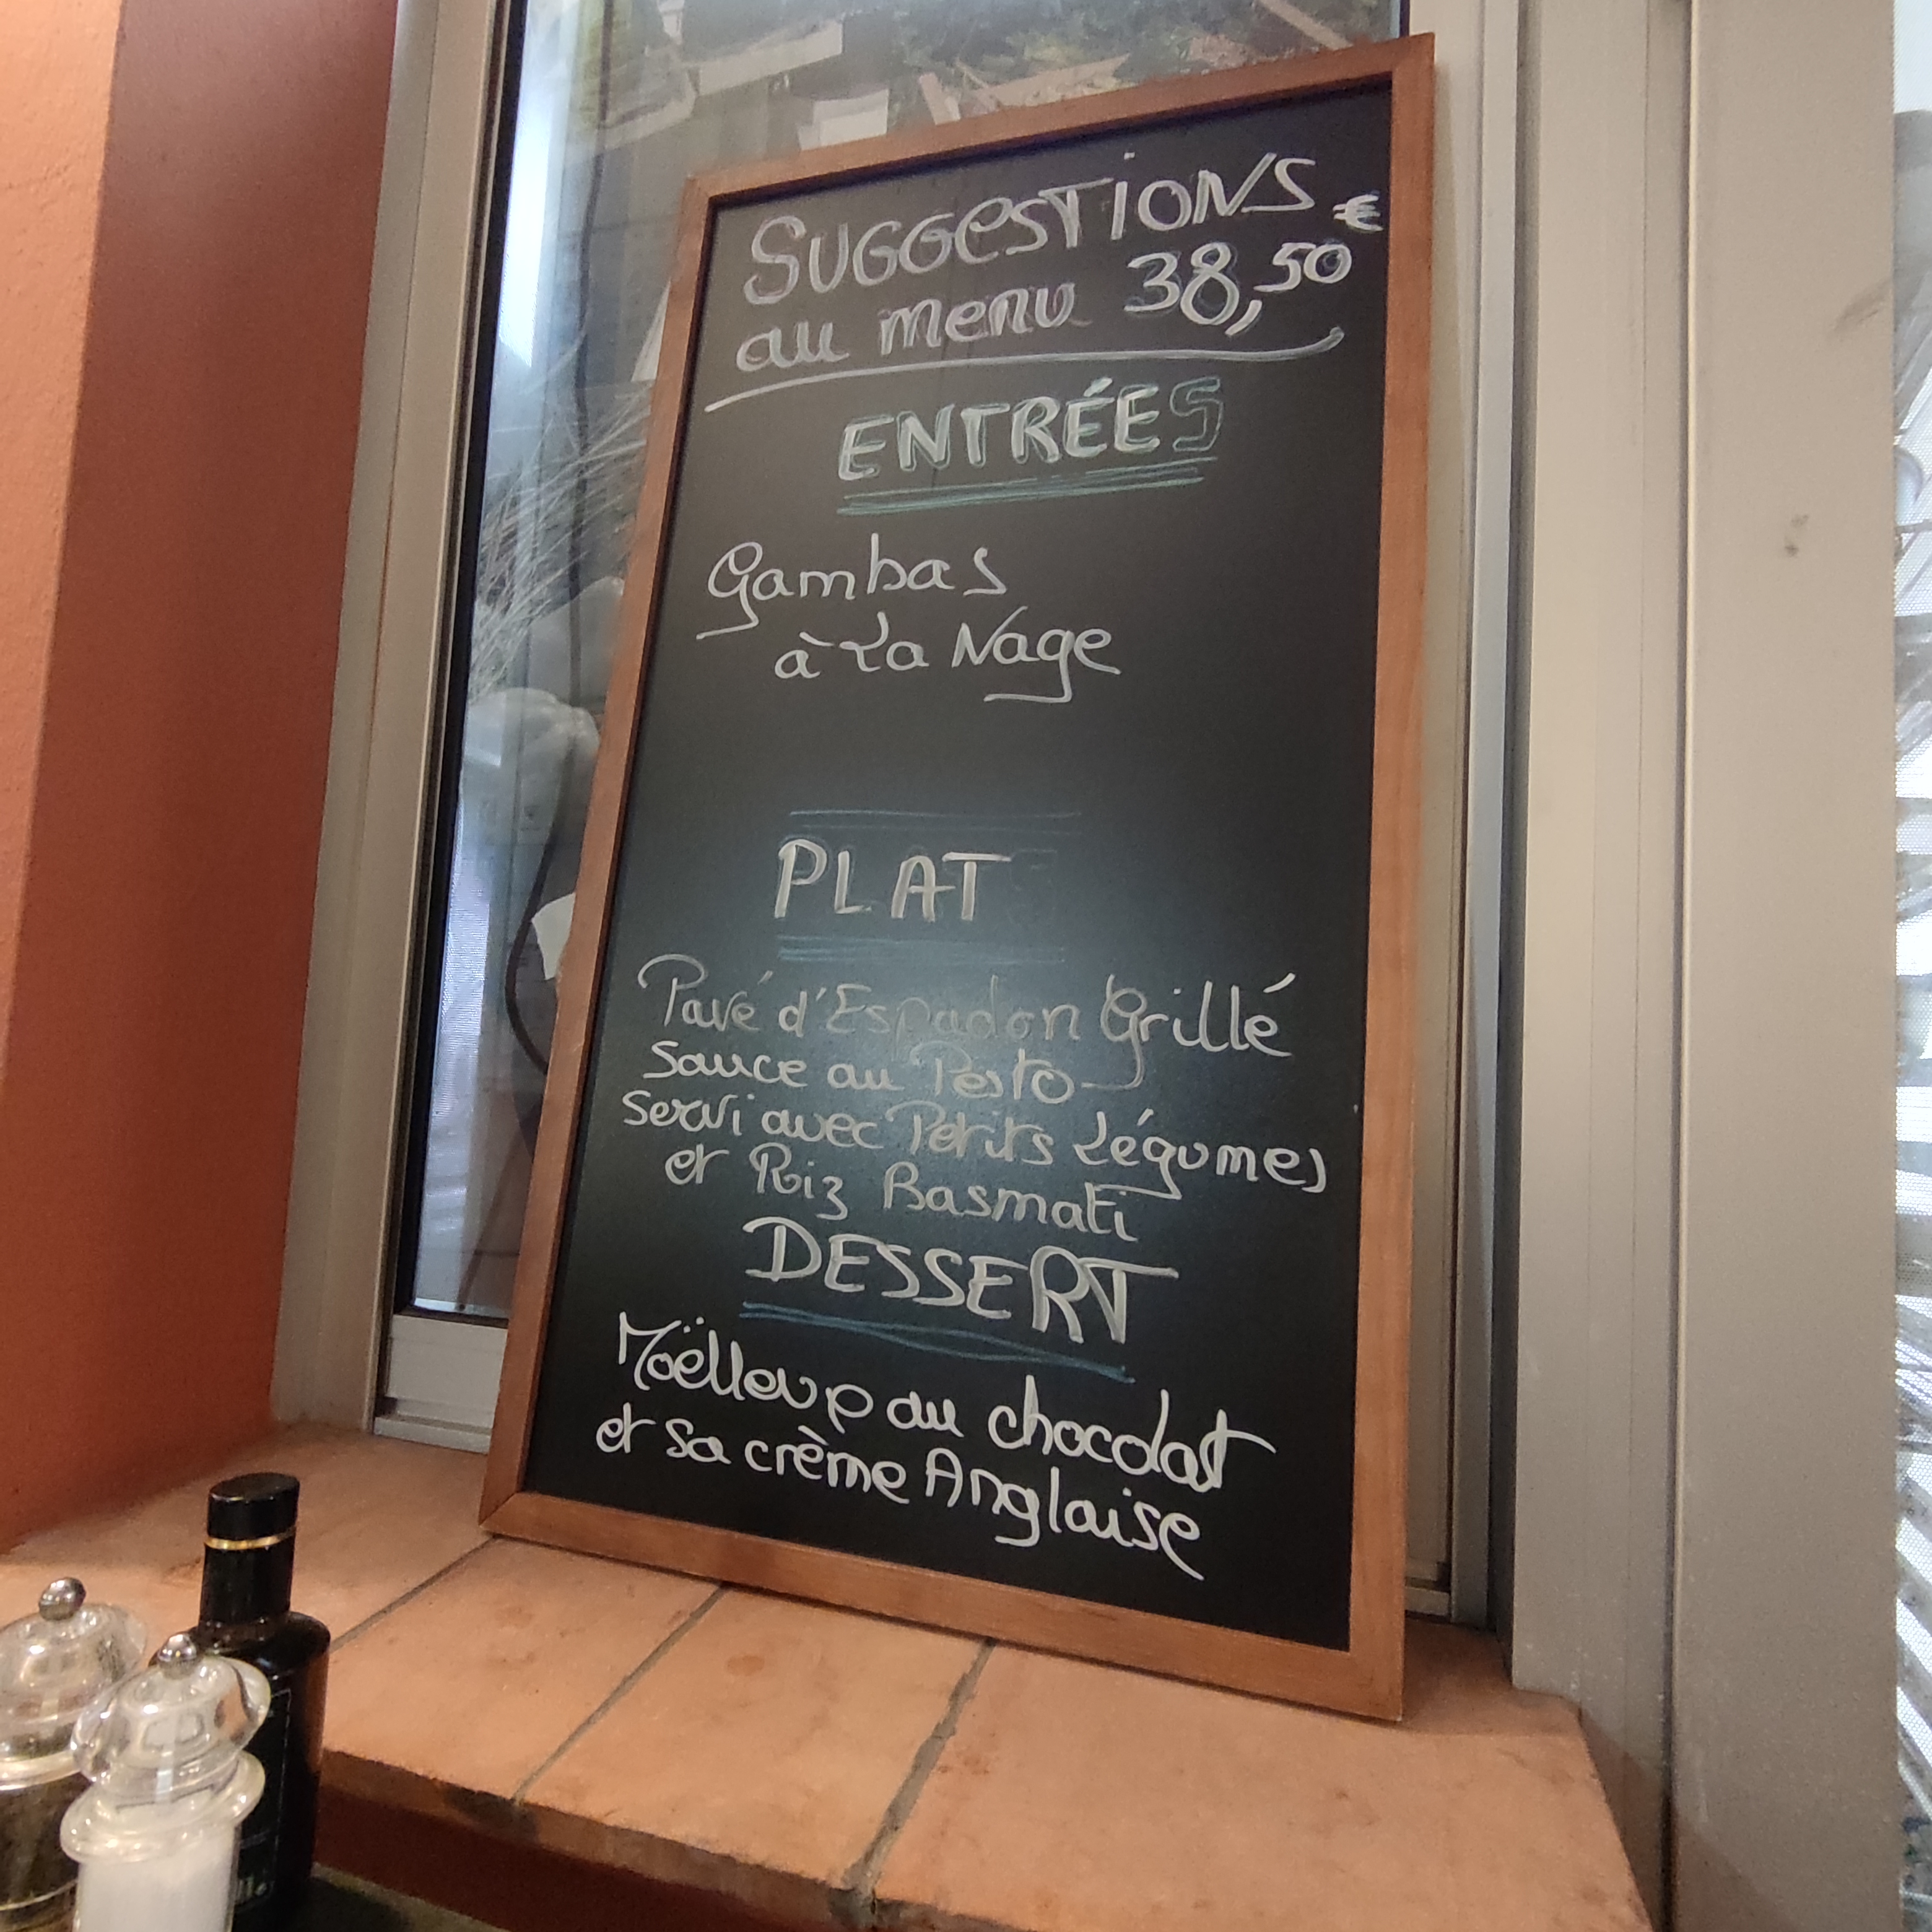 SUGGESTIONS
au menu 38,50 €
ENTRÉES
Gambas
à La Nage
PLAT
Pavé d'Espadon Grillé
Sauce au Pesto
Servi avec Petits Légumes
et Riz Basmati
DESSERT
Moëlleux au chocolat
et sa crème Anglaise